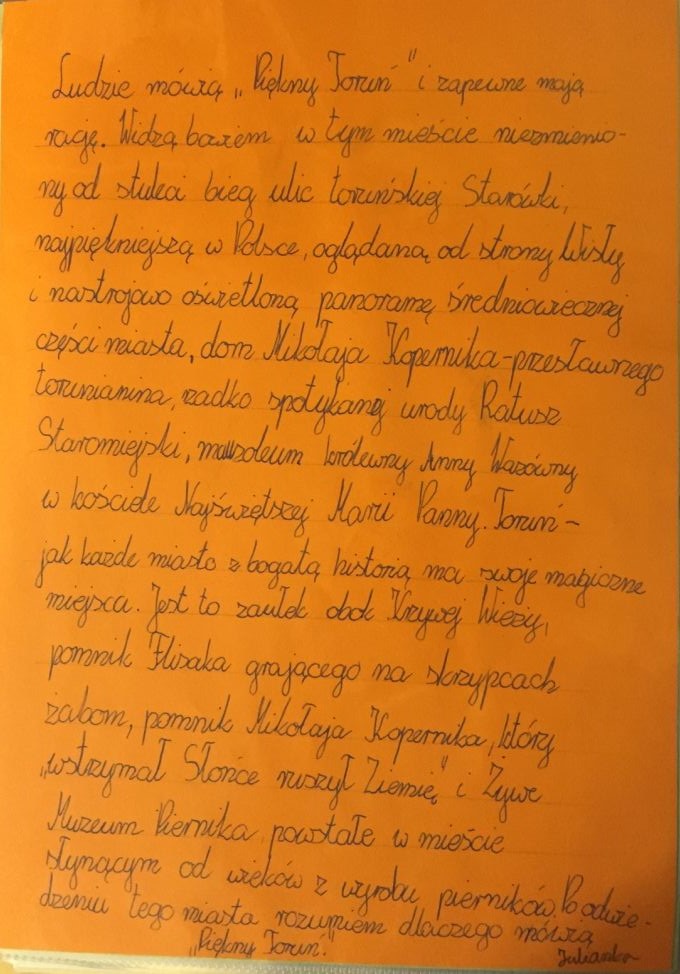 Ludzie mówią „Piękny Toruń” i zapewne mają
rację. Widzą bowiem w tym mieście niezmienio-
ny od stuleci bieg ulic toruńskiej Starówki,
najpiękniejszą w Polsce, oglądaną od strony Wisły
i nastrojowo oświetloną panoramę średniowiecznej
części miasta, dom Mikołaja Kopernika-przesławnego
torunianina, rzadko spotykanej urody Ratusz
Staromiejski, mauzoleum królewny Anny Wazówny
w kościele Najświętszej Marii Panny. Toruń –
jak każde miasto z bogatą historią ma swoje magiczne
miejsca. Jest to zaułek obok Krzywej Wieży,
pomnik Flisaka grającego na skrzypcach
żabom, pomnik Mikołaja Kopernika, który
„wstrzymał Słońce ruszył Ziemię” i Żywe
Muzeum Piernika powstałe w mieście
słynącym od wieków z wyrobu pierników. Po odwie-
dzeniu tego miasta rozumiem dlaczego mówią
„Piękny Toruń.”
Julianka